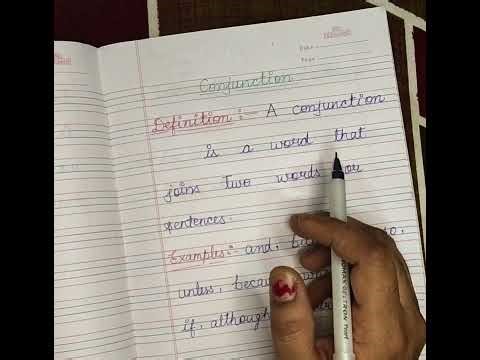 Date
Page
Conjunction
Definition:- A conjunction
is a word that
joins two words or
sentences.
Examples:- and,
unless,
if, although